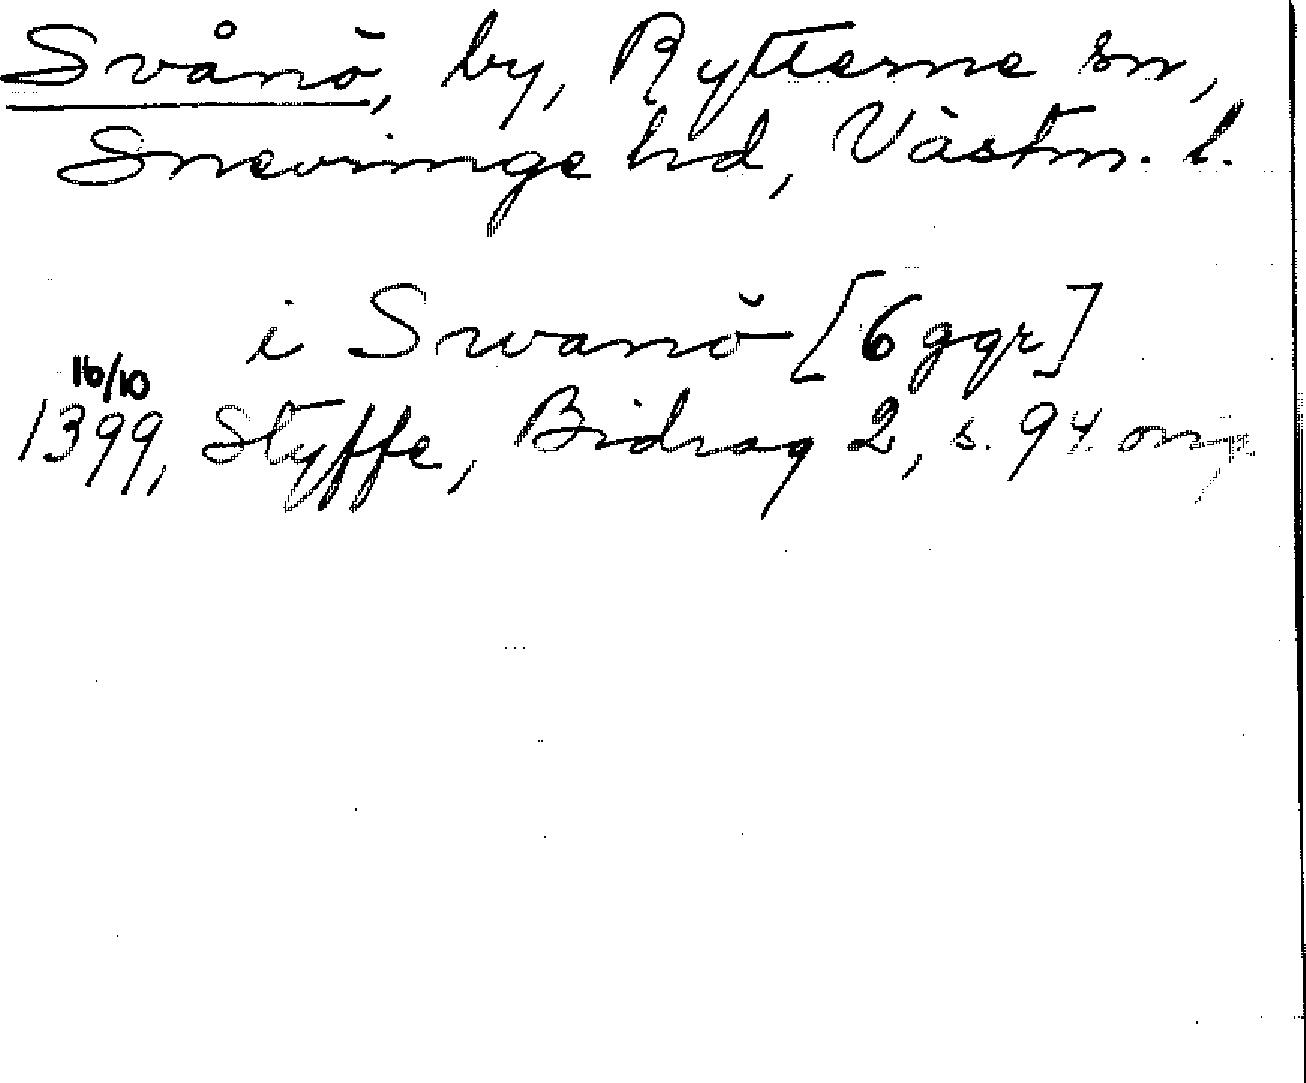 Svånö, by, Rytterne sn,
Snevringe hd, Västm. l.
i Swanö [6 ggr]
16/10
1399, Styffe, Bidrag 2, s. 94. orig.